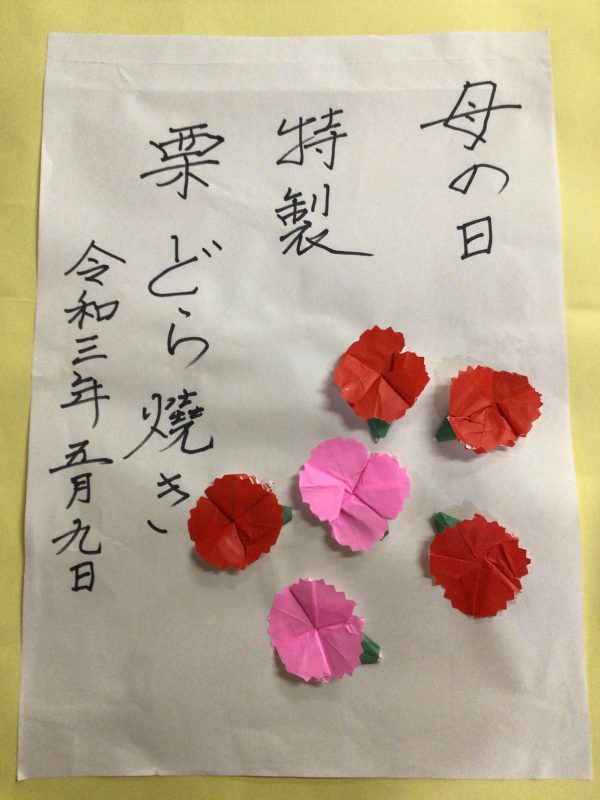 母の日
特製
栗どら焼き
令和三年五月九日